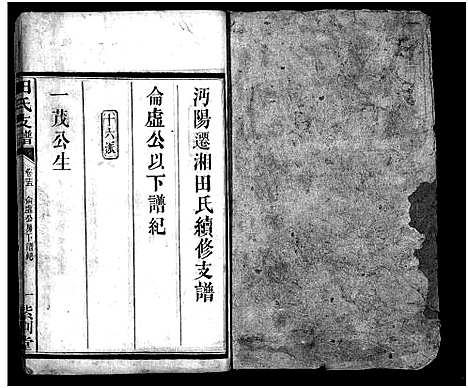 沔陽遷湘田氏續修支譜
侖虛公以下譜紀
十六派
一茂公生
田氏支譜
侖虛公房下譜紀
一
紫荊堂